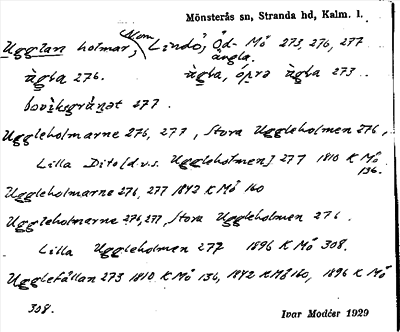 Mönsterås sn, Stranda hd, Kalm. l.
Ugglan holmar, Lindö, Öd- Mö 273, 276, 277
ùgla 276. ùgla, ùgla 273
277.
Uggleholmarne 276, 277, Stora Uggleholmen 276,
Lilla Dito [d.v.s. Uggleholmen] 277 1810 K Mö
136.
Uggleholmarne 276, 277 1842 K Mö 160
Uggleholmarne 276, 277, Stora Uggleholmen 276.
Lilla Uggleholmen 277 1896 K Mö 308.
Ugglefällan 273 1810 K Mö 136, 1842 K Mö 160, 1896 K Mö
308.
Ivar Modéer 1929